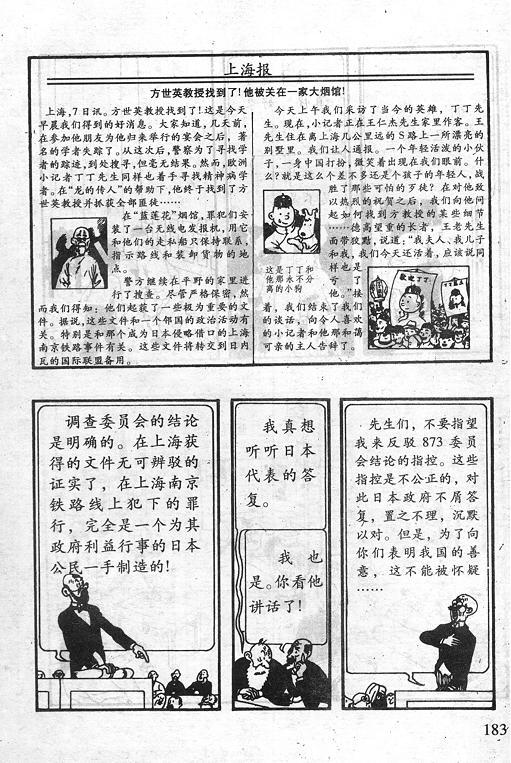 上海报
方世英教授找到了!他被关在一家大烟馆!
上海,7日讯。方世英教授找到了!这是今天
早晨我们得到的好消息。大家知道,几天前,
在参加他朋友为他归来举行的宴会之后,著
名的学者失踪了。从这次后,警察为了寻找学
者的踪迹,到处搜寻,但毫无结果。然而,欧洲
小记者丁丁先生同样也着手寻找精神病学
者。在“龙的传人”的帮助下,他终于找到了方
世英教授并抓获全部匪徒……
在“蓝莲花”烟馆,罪犯们安
装了一台无线电发报机,用它
和他们的走私船只保持联系,
指示路线和装卸货物的地
点。
警方继续在平野的家里进
行了搜查。尽管严格保密,然
而我们得知:他们起获了一些极为重要的文
件。据说,这些文件和一个邻国的政治活动有
关。特别是和那个成为日本侵略借口的上海
南京铁路事件有关。这些文件将转交到日内
瓦的国际联盟备用。
今天上午我们采访了当今的英雄,丁丁先
生。现在,小记者正在王仁杰先生家里作客。王
先生住在离上海几公里远的S路上一所漂亮的
别墅里。我们让人通报。一个年轻活泼的小伙
子,一身中国打扮,微笑着出现在我们眼前。什
么?就是这么个差不多还是个孩子的年轻人,战
胜了那些可怕的歹徒?在对他致
以热烈的祝贺之后,我们向他问
起如何找到方教授的某些细节
……德高望重的长者,王老先生
面带狡黠,说道:“我夫人、我儿子
和我,我们今天还活着,应该说同
样也是
亏了
他。”接
着,我们结束了我们
的谈话,向令人喜欢
的小记者和他那和蔼
可亲的主人告辞了。
这是丁丁和
他那永不分
离的小狗
欢迎丁丁
调查委员会的结论
是明确的。在上海获
得的文件无可辨驳的
证实了,在上海南京
铁路线上犯下的罪
行,完全是一个为其
政府利益行事的日本
公民一手制造的!
我真想
听听日本
代表的答
复。
我也
是。你看他
讲话了!
先生们,不要指望
我来反驳873委员
会结论的指控。这些
指控是不公正的,对
此日本政府不屑答
复,置之不理,沉默
以对。但是,为了向
你们表明我国的善
意,这不能被怀疑
……
183